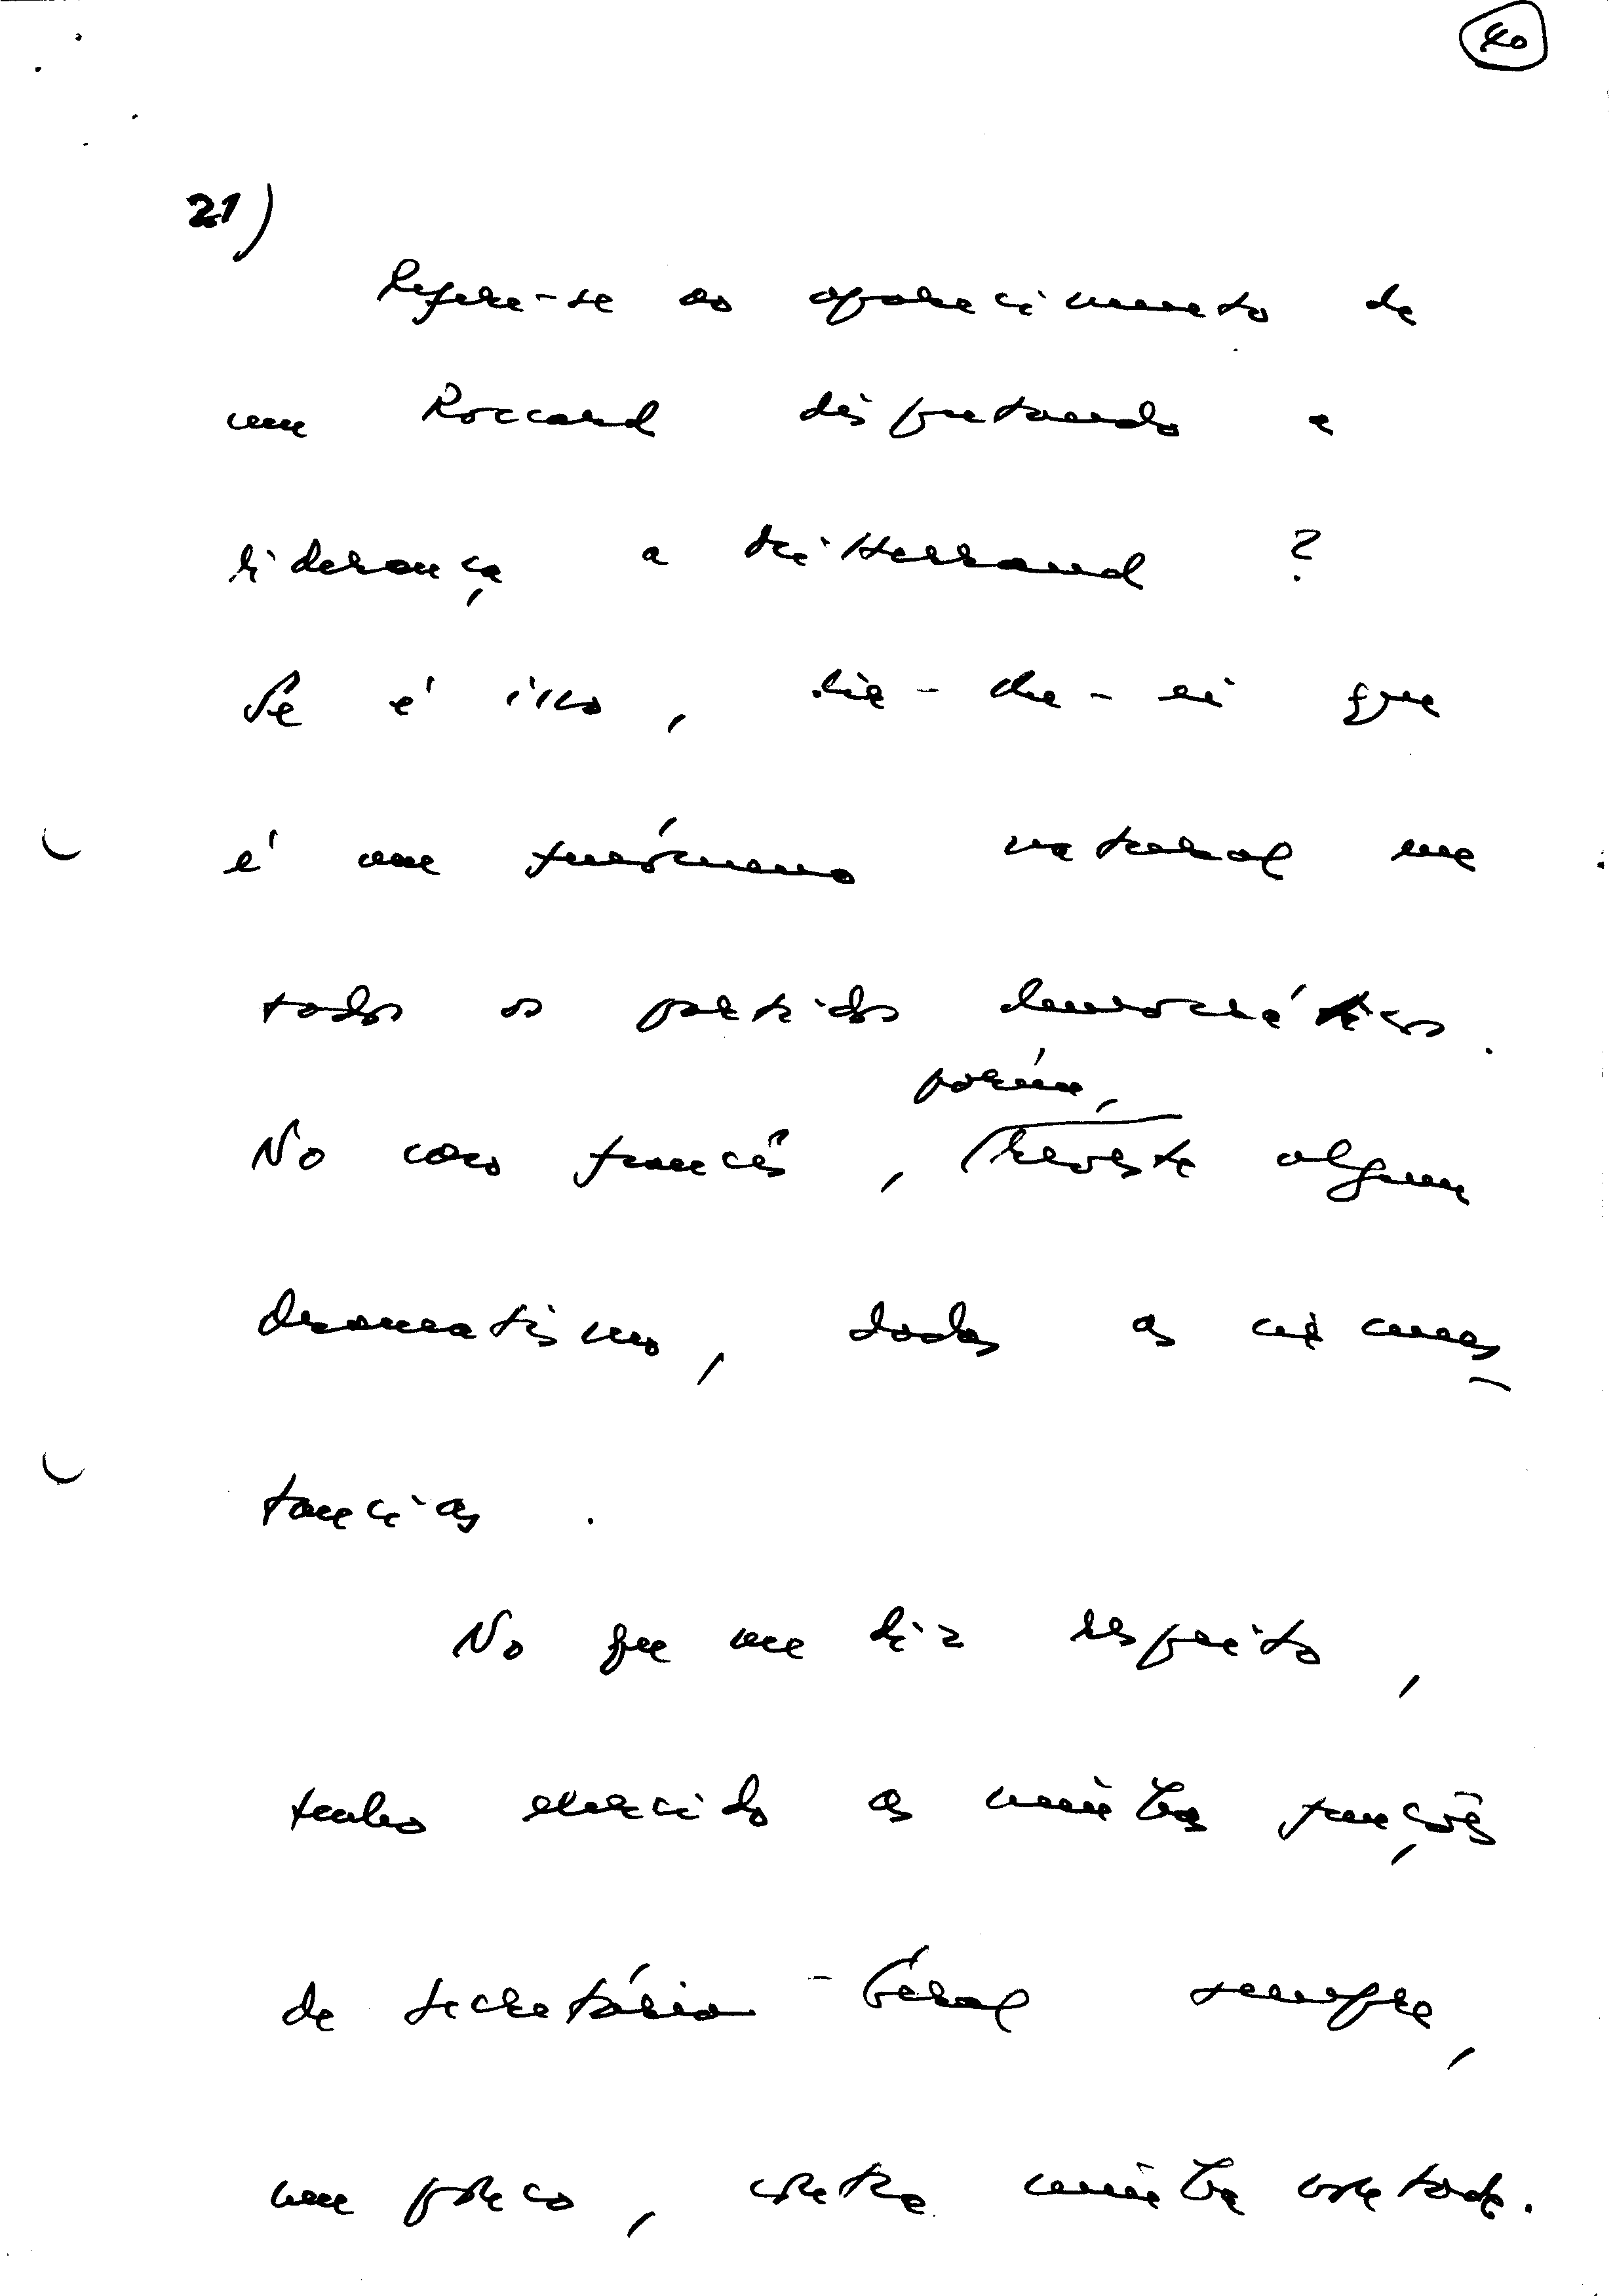 40
21)
Refere-se ao aparecimento de
um Roccard disputando a
liderança a Mitterrand ?
Se é isso, dir-lhe-ei que
é um fenómeno natural em
todos os partidos democráticos.
porém,
No caso francês, reveste algum
dramatismo, dadas as circuns-
tancias.
No que me diz respeito,
tenho exercido as minhas funções
de secretário-Geral sempre,
um pouco, contra minha vontade.